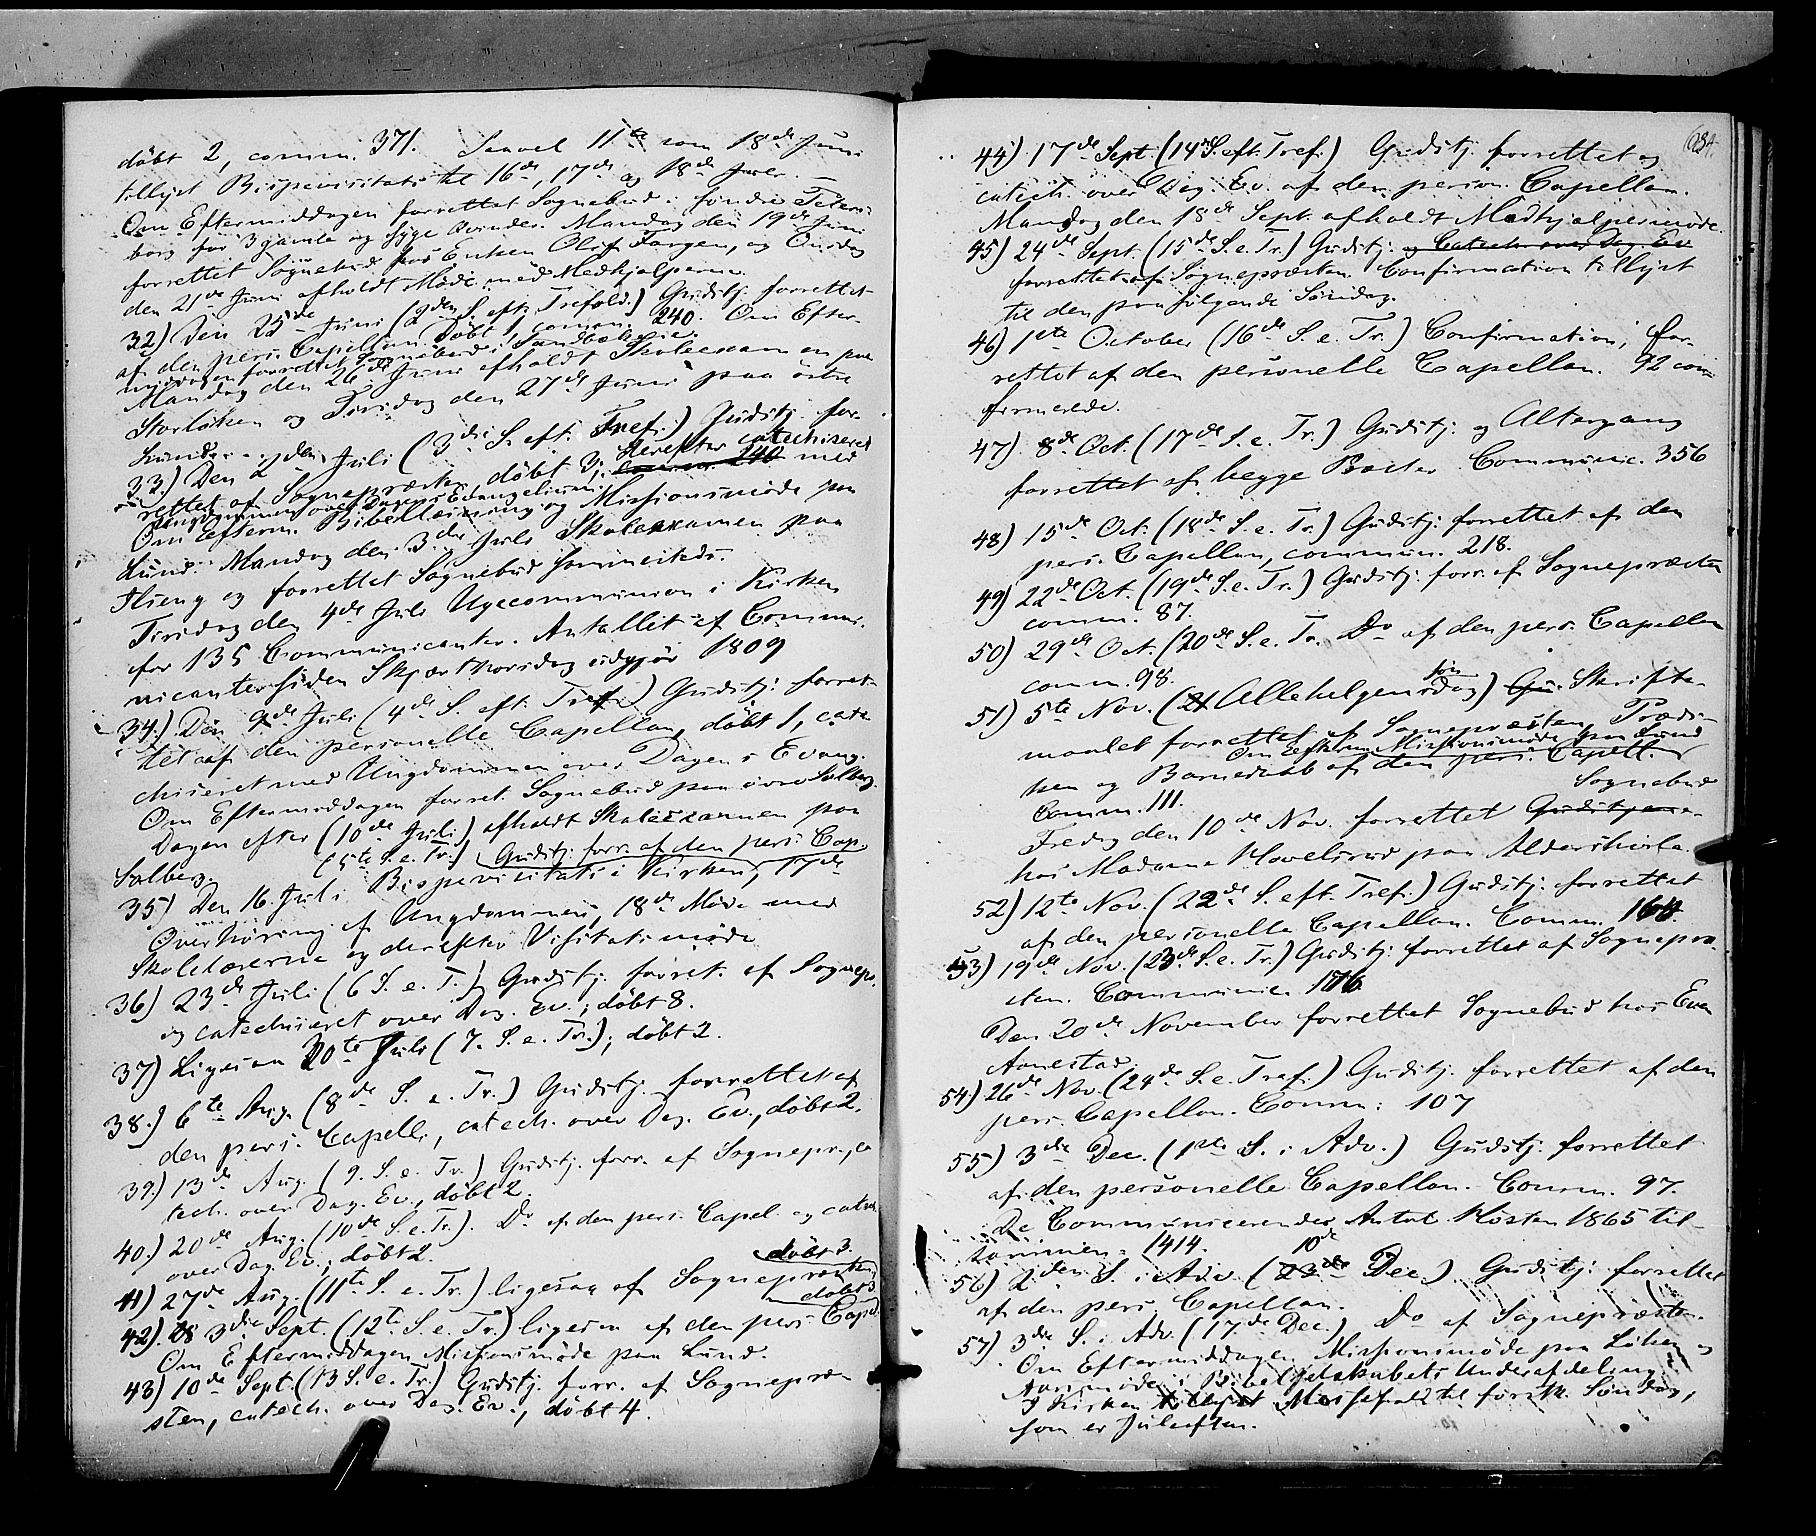 döbt 2, comm. 371. Saavel 11te som 18de Juni
tillyst Bispevisitats til 16de, 17de og 18de Juli. —
Om Eftermiddagen forrettet Sognebud i søndre
borg for 3 gamle og syge Qvinder. Mandag den 19de Juni
forrettet Sognebud hos Enken Olif Fangen, og Onsdag
den 21de Juni afholdt Møde med Medhjælperne.
32) Den 25de Juni (2den S. eft. Trefold.) Gudstj. forrettet
af den pers. Capellan. Döbt 1, comm. 240. Om Efter-
middagen forrettet Sognebud i
Mandag den 26de Juni afholdt Skoleexamen paa
Storløken og Tirsdag den 27de Juni paa östre
33.) Den 2den Juli (3die S. eft. Tref.) Gudstj. for-
rettet af Sognepræsten, döbt 3, derefter catechiseret
Ungdommen over Dagens Evangelium. comm. 240 med
Om Efterm. Bibellæsning og Missionsmøde paa
Lund. Mandag den 3die Juli Skoleexamen paa
og forrettet Sognebud sammesteds.
Tirsdag den 4de Juli Ugecommunion i Kirken
for 135 Communicanter. Antallet af Commu-
nicanter siden Skjærthorsdag udgjør 1809
34.) Den 9de Juli (4de S. eft. Tref.) Gudstj. forret-
tet af den personelle Capellan, döbt 1, cate-
chiseret med Ungdommen over Dagens Evang.
Om Eftermiddagen forret. Sognebud paa øvre Salberg.
Dagen efter (10de Juli) afholdt Skoleexamen paa
Salberg. (5te S. e. Tr.) Gudstj. forr. af den pers. Cap.
35) Den 16. Juli Bispevisitats i Kirken, 17de
Overhöring af Ungdommen, 18de Møde med
Skolelærerne og derefter Visitatsmøde
36) 23de Juli (6 S. e. T.) Gudstj. forret. af Sognepr.
og catechiseret over Dag. Ev.; döbt 8.
37) Ligesaa 30te Juli (7. S. e. Tr.); döbt 2.
38.) 6te Aug. (8de S. e. Tr.) Gudstj. forrettet af
den pers. Capell., catech. over Dag. Ev., döbt 2.
39.) 13de Aug. (9. S. e. Tr.) Gudstj. forr. af Sognepr., ca-
tech. over Dag. Ev., döbt 2.
40.) 20de Aug. (10de S. e. Tr.). Do af den pers. Capel. og catech.
over Dag. Ev., döbt 2. döbt 3.
41) 27de Aug. (11te S. e. Tr.) ligesaa af Sognepræsten
döbt 3
42). 3die Sept. (12te S. e. Tr.) ligesaa af den pers. Capel.
Om Eftermiddagen Missionsmøde paa Lund.
43) 10de Sept. (13 S. e. Tr.) Gudstj. forr. af Sognepræ-
sten, catech. over Dag. Ev., döbt 4.
634.
44) 17de Sept. (14 S. eft. Tref.) Gudstj. forrettet og
catech. over Dag. Ev. af den person. Capellan.
Mandag den 18de Sept. afholdt Medhjælpermøde.
45) 24de Sept. (15de S. e. Tr.) Gudstj. og Catech. over Dag. Ev.
forrettet af Sognepræsten. Confirmation tillyst
til den paafølgende Søndag.
46) 1ste October (16de S. e. Tr.) Confirmation, for-
rettet af den personelle Capellan. 92 con-
firmerede.
47) 8de Oct. (17de S. e. Tr.) Gudstj. og Altergang
forrettet af begge Præster. Communic. 356
48) 15de Oct. (18de S. e. Tr.) Gudstj. forrettet af den
pers. Capellan, commun. 218.
49) 22de Oct. (19de S. e. Tr.) Gudstj. forr. af Sognepræsten
comm. 87.
50) 29de Oct. (20de S. e. Tr. Do af den pers. Capellan
comm. 98.
51) 5te Nov. (21 Allehelgens søndag) Gu. Skrifte-
maalet forrettet af Sognepræsten, Prædi-
Om Efterm. Missionsmøde paa Lund
ken og Barnedaab af den pers. Capell.
Comm. 111. Sognebud
Fredag den 10de Nov. forrettet Gudstjene-
hos Madame Hovelsrud paa Alderslyst.
52) 12te Nov. (22de S. eft. Tref.) Gudstj. forrettet
af den personelle Capellan. Comm. 168
53) 19de Nov. (23de S. e. Tr.) Gudstj. forrettet af Sognepræ-
sten. Communic. 176
Den 20de November forrettet Sognebud hos Even
Aanestad.
54.) 26de Nov. (24de S. e. Tref.) Gudstj. forrettet af den
pers. Capellan. Comm: 107
55) 3die Dec. (1ste S. i Adv.) Gudstj. forrettet
af den personelle Capellan. Comm. 97.
De Communicerendes Antal Høsten 1865 til-
sammen = 1414. 10de
56) 2den S. i Adv. (23de Dec.) Gudstj. forrettet
af den pers. Capellan.
57) 3die S. i Adv. (17de Dec.) Do af Sognepræsten.
Om Eftermiddagen Missionsmøde paa Løken og
Aarsmøde i Bibelselskabets Underafdeling
I Kirken tillyst Messefald til førstk. Søndag,
som er Juleaften.